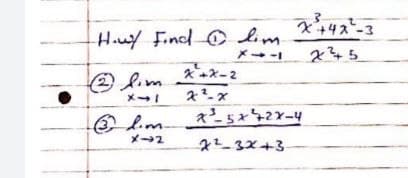 H.w/ Find ① lim x→-1 (x³+4x²-3)/(x²+5)
② lim x→1 (x²+x-2)/(x²-x)
③ lim x→2 (x³-5x²+2x-4)/(x²-3x+3)